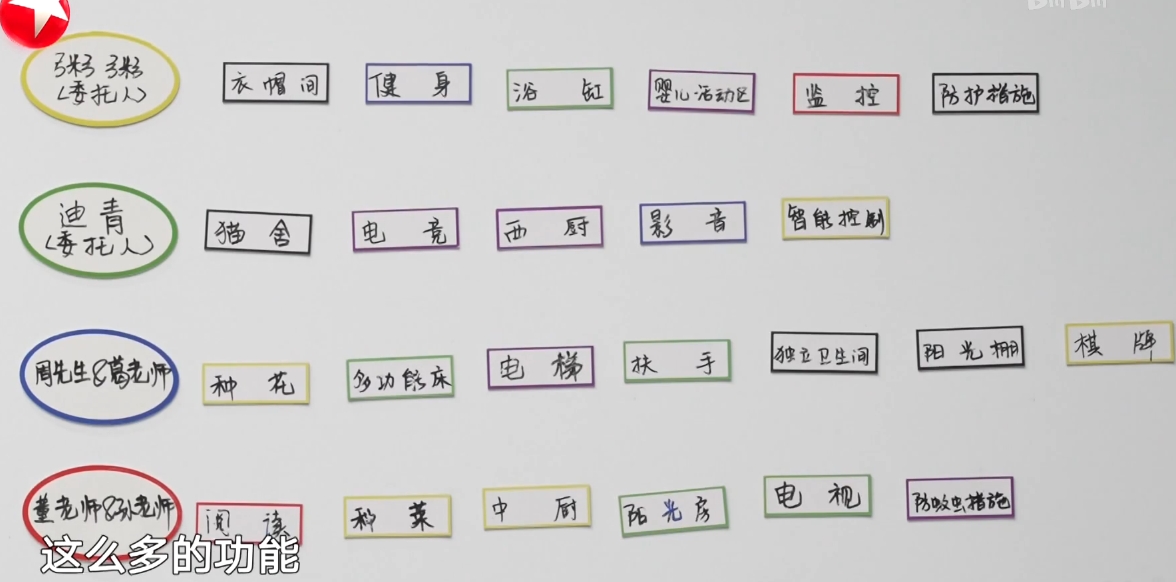 bilibili
粥粥
(委托人)
衣帽间 健身 浴缸 婴儿活动区 监控 防护措施
迪青
(委托人)
猫舍 电竞 西厨 影音 智能控制
周先生&葛老师 种花 多功能床 电梯 扶手 独立卫生间 阳光棚 棋牌
董老师&孙老师 阅读 种菜 中厨 阳光房 电视 防蚊虫措施
这么多的功能